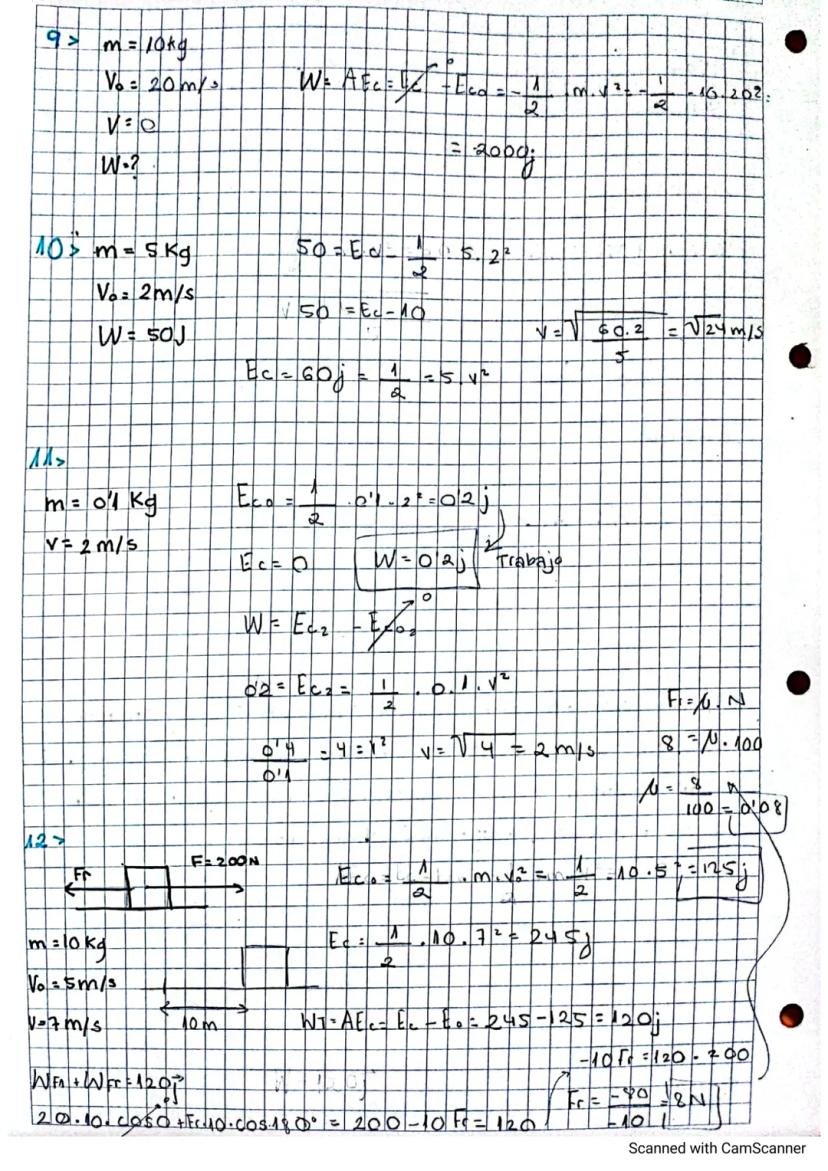 9> m = 10kg
V₀ = 20 m/s
V = 0
W=?
W = ΔEc = Ec⁰ - Ec₀ = -1/2 · m · v² = -1/2 · 10 · 20² =
= 2000j
10> m = 5 Kg
V₀ = 2m/s
W = 50J
50 = Ec - 1/2 · 5 · 2²
50 = Ec - 10
Ec = 60j = 1/2 = 5 · v²
v = √(60·2/5) = √24 m/s
11>
m = 0'1 Kg
v = 2 m/s
Ec₀ = 1/2 · 0'1 · 2² = 0'2 j
Ec = 0 W = 0'2j Trabajo
W = Ec₂ - Ec₀₂ 0
0'2 = Ec₂ = 1/2 · 0.1 · v²
0'4/0'1 = 4 = v² v = √4 = 2 m/s
Fr = μ · N
8 = μ · 100
μ = 8/100 = 0'08
12>
Fr F = 200N
m = 10 kg
V₀ = 5m/s
V=7 m/s
10m
Ec₀ = 1/2 · m · v₀² = 1/2 · 10 · 5² = 125j
Ec = 1/2 · 10 · 7² = 245j
WT = ΔEc = Ec - E₀ = 245 - 125 = 120j
WFA + WFr = 120j
20 · 10 · cos0 + Fr·10 · cos180° = 200 - 10 Fr = 120
-10 Fr = 120 - 200
Fr = -80/-10 = 8N
Scanned with CamScanner